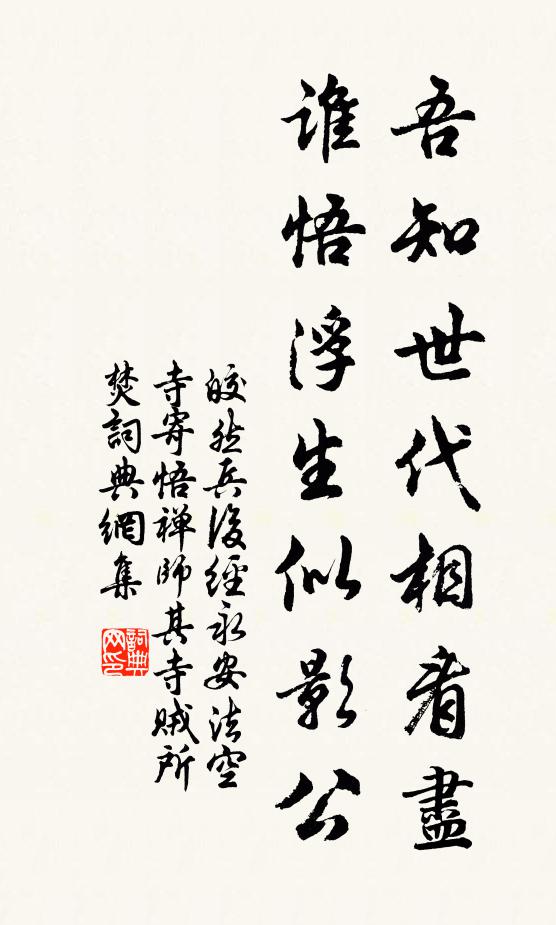 吾知世代相看盡
誰悟浮生似影公
皎然兵後經永安法空
寺寄悟禅師其寺賊所
焚詞典網集
詞典
网印